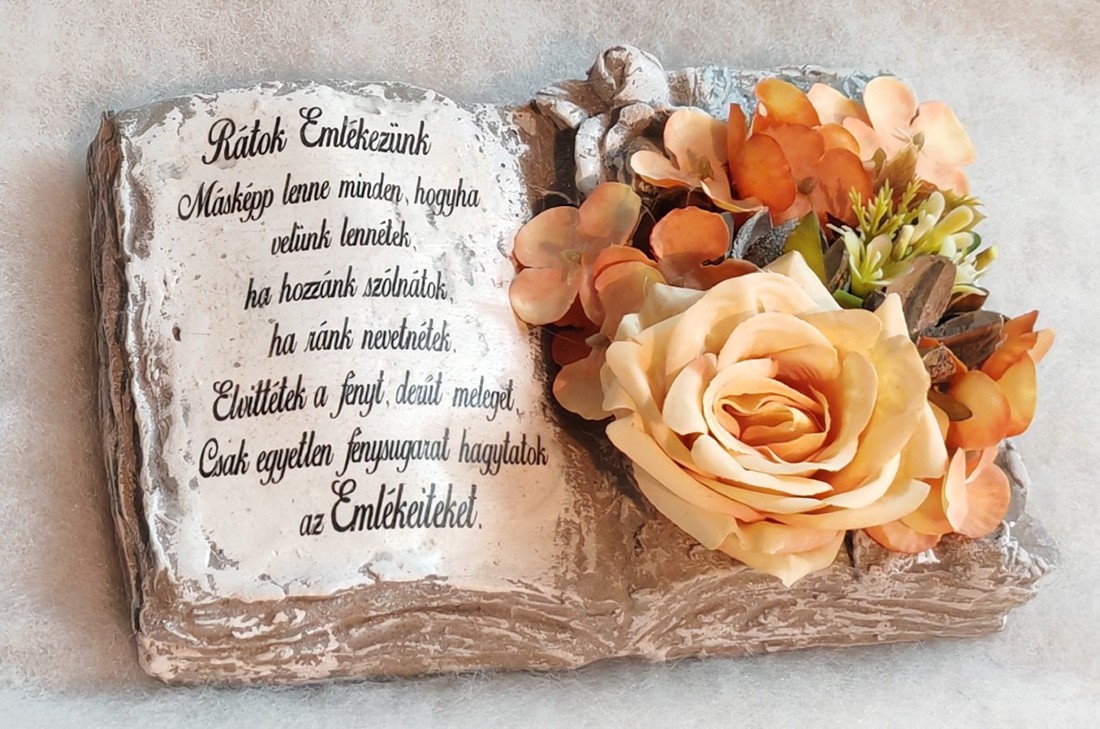 Rátok Emlékezünk
Másképp lenne minden, hogyha
velünk lennétek,
ha hozzánk szólnátok,
ha ránk nevetnétek.
Elvittétek a fényt, derűt meleget,
Csak egyetlen fenysugarat hagytatok
az Emlékeiteket.